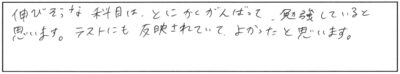 伸びそうな科目は、とにかくがんばって、勉強していると
思います。テストにも反映されていて、よかったと思います。